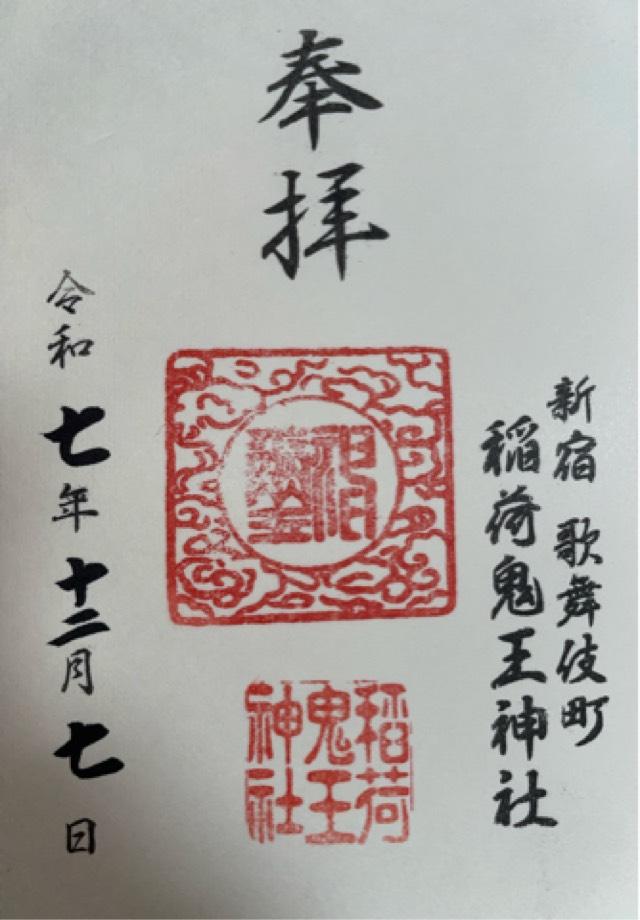 奉拝
新宿 歌舞伎町
稲荷鬼王神社
稲荷
鬼王
神社
令和七年十二月七日